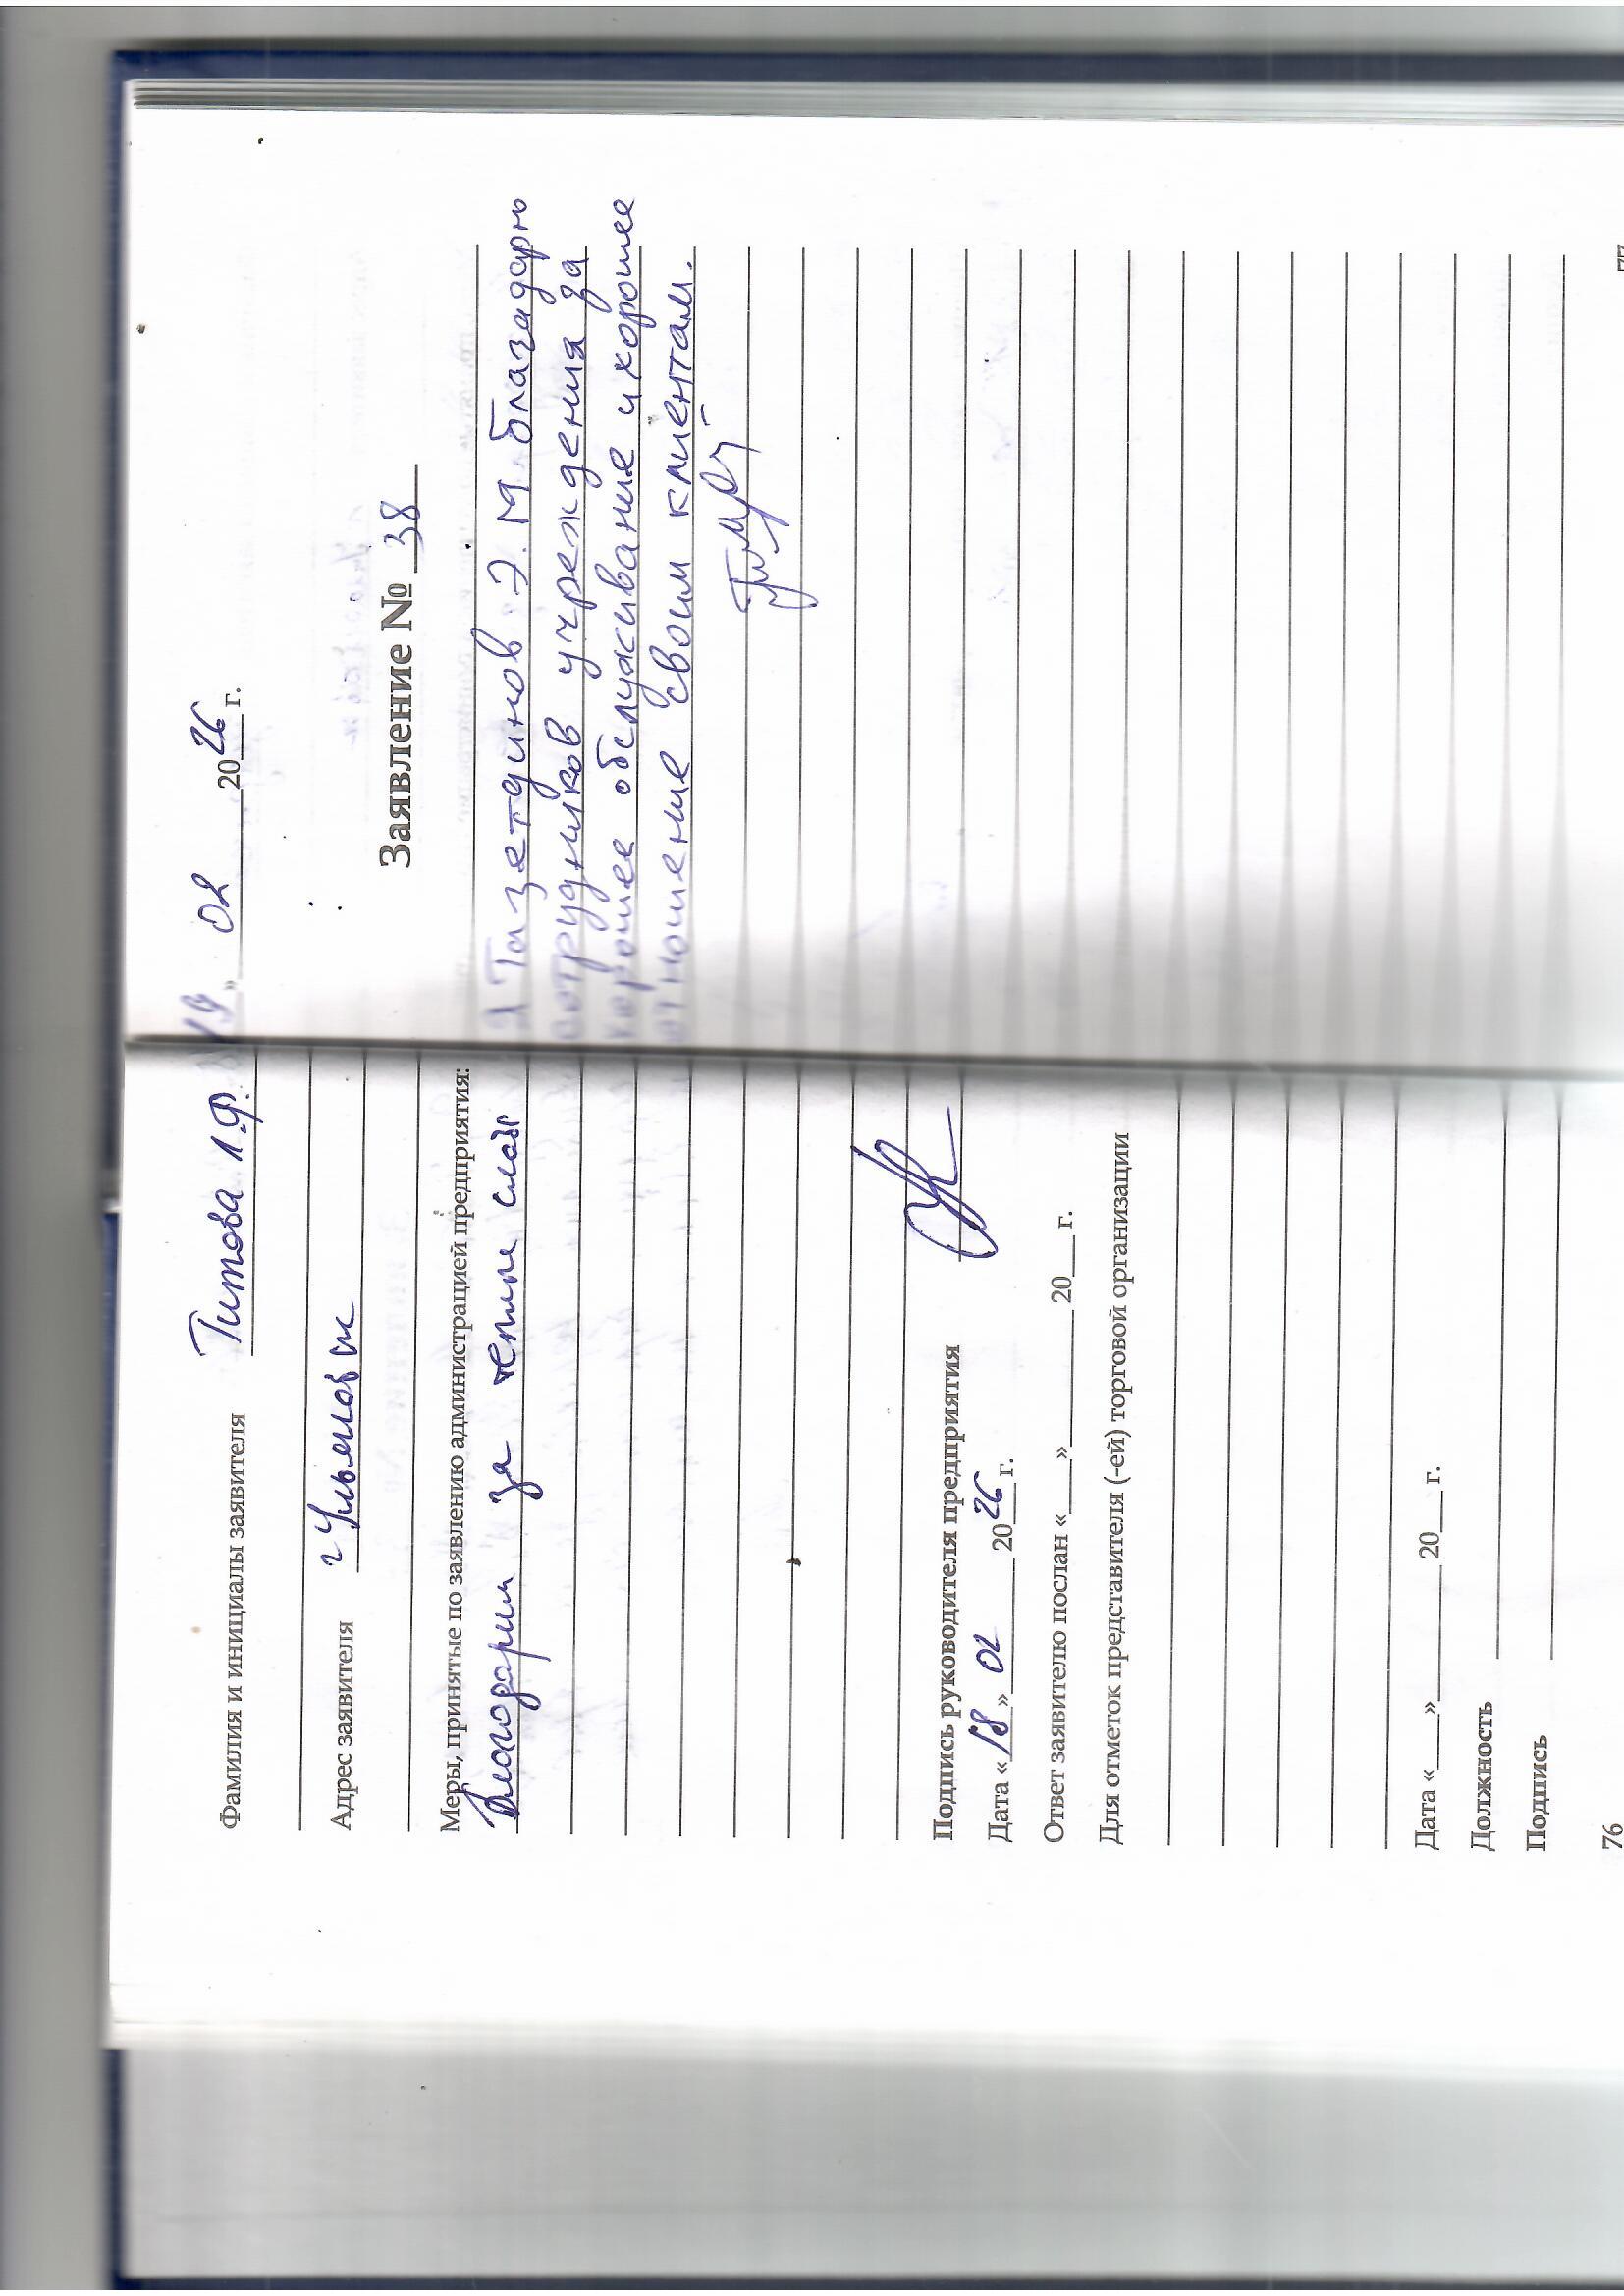 Фамилия и инициалы заявителя Титова Л.Ф.
Адрес заявителя г Ульяновск
Меры, принятые по заявлению администрацией предприятия:
Благодарим за теплые слова
Подпись руководителя предприятия
Дата «18» 02 2026 г.
Ответ заявителю послан «___»________20___ г.
Для отметок представителя (-ей) торговой организации
Дата «___»________20___ г.
Должность
Подпись
76
19» 02 2026 г.
Заявление № 38
Я Тазетдинов Э. М. благодарю
сотрудников учреждения за
хорошее обслуживание и хорошее
отношение своим клиентам.
77